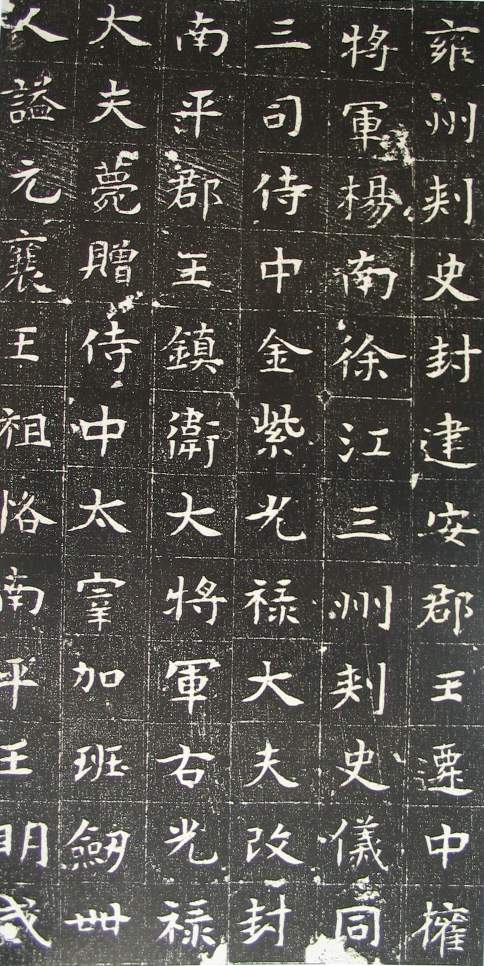 雍州刾史封建安郡王遷中權
將軍楊南徐江三州刾史儀同
三司侍中金紫光禄大夫改封
南平郡王鎮衛大將軍右光禄
大夫薨贈侍中太宰加班劒卌
人謚元襄王祖恪南平王明